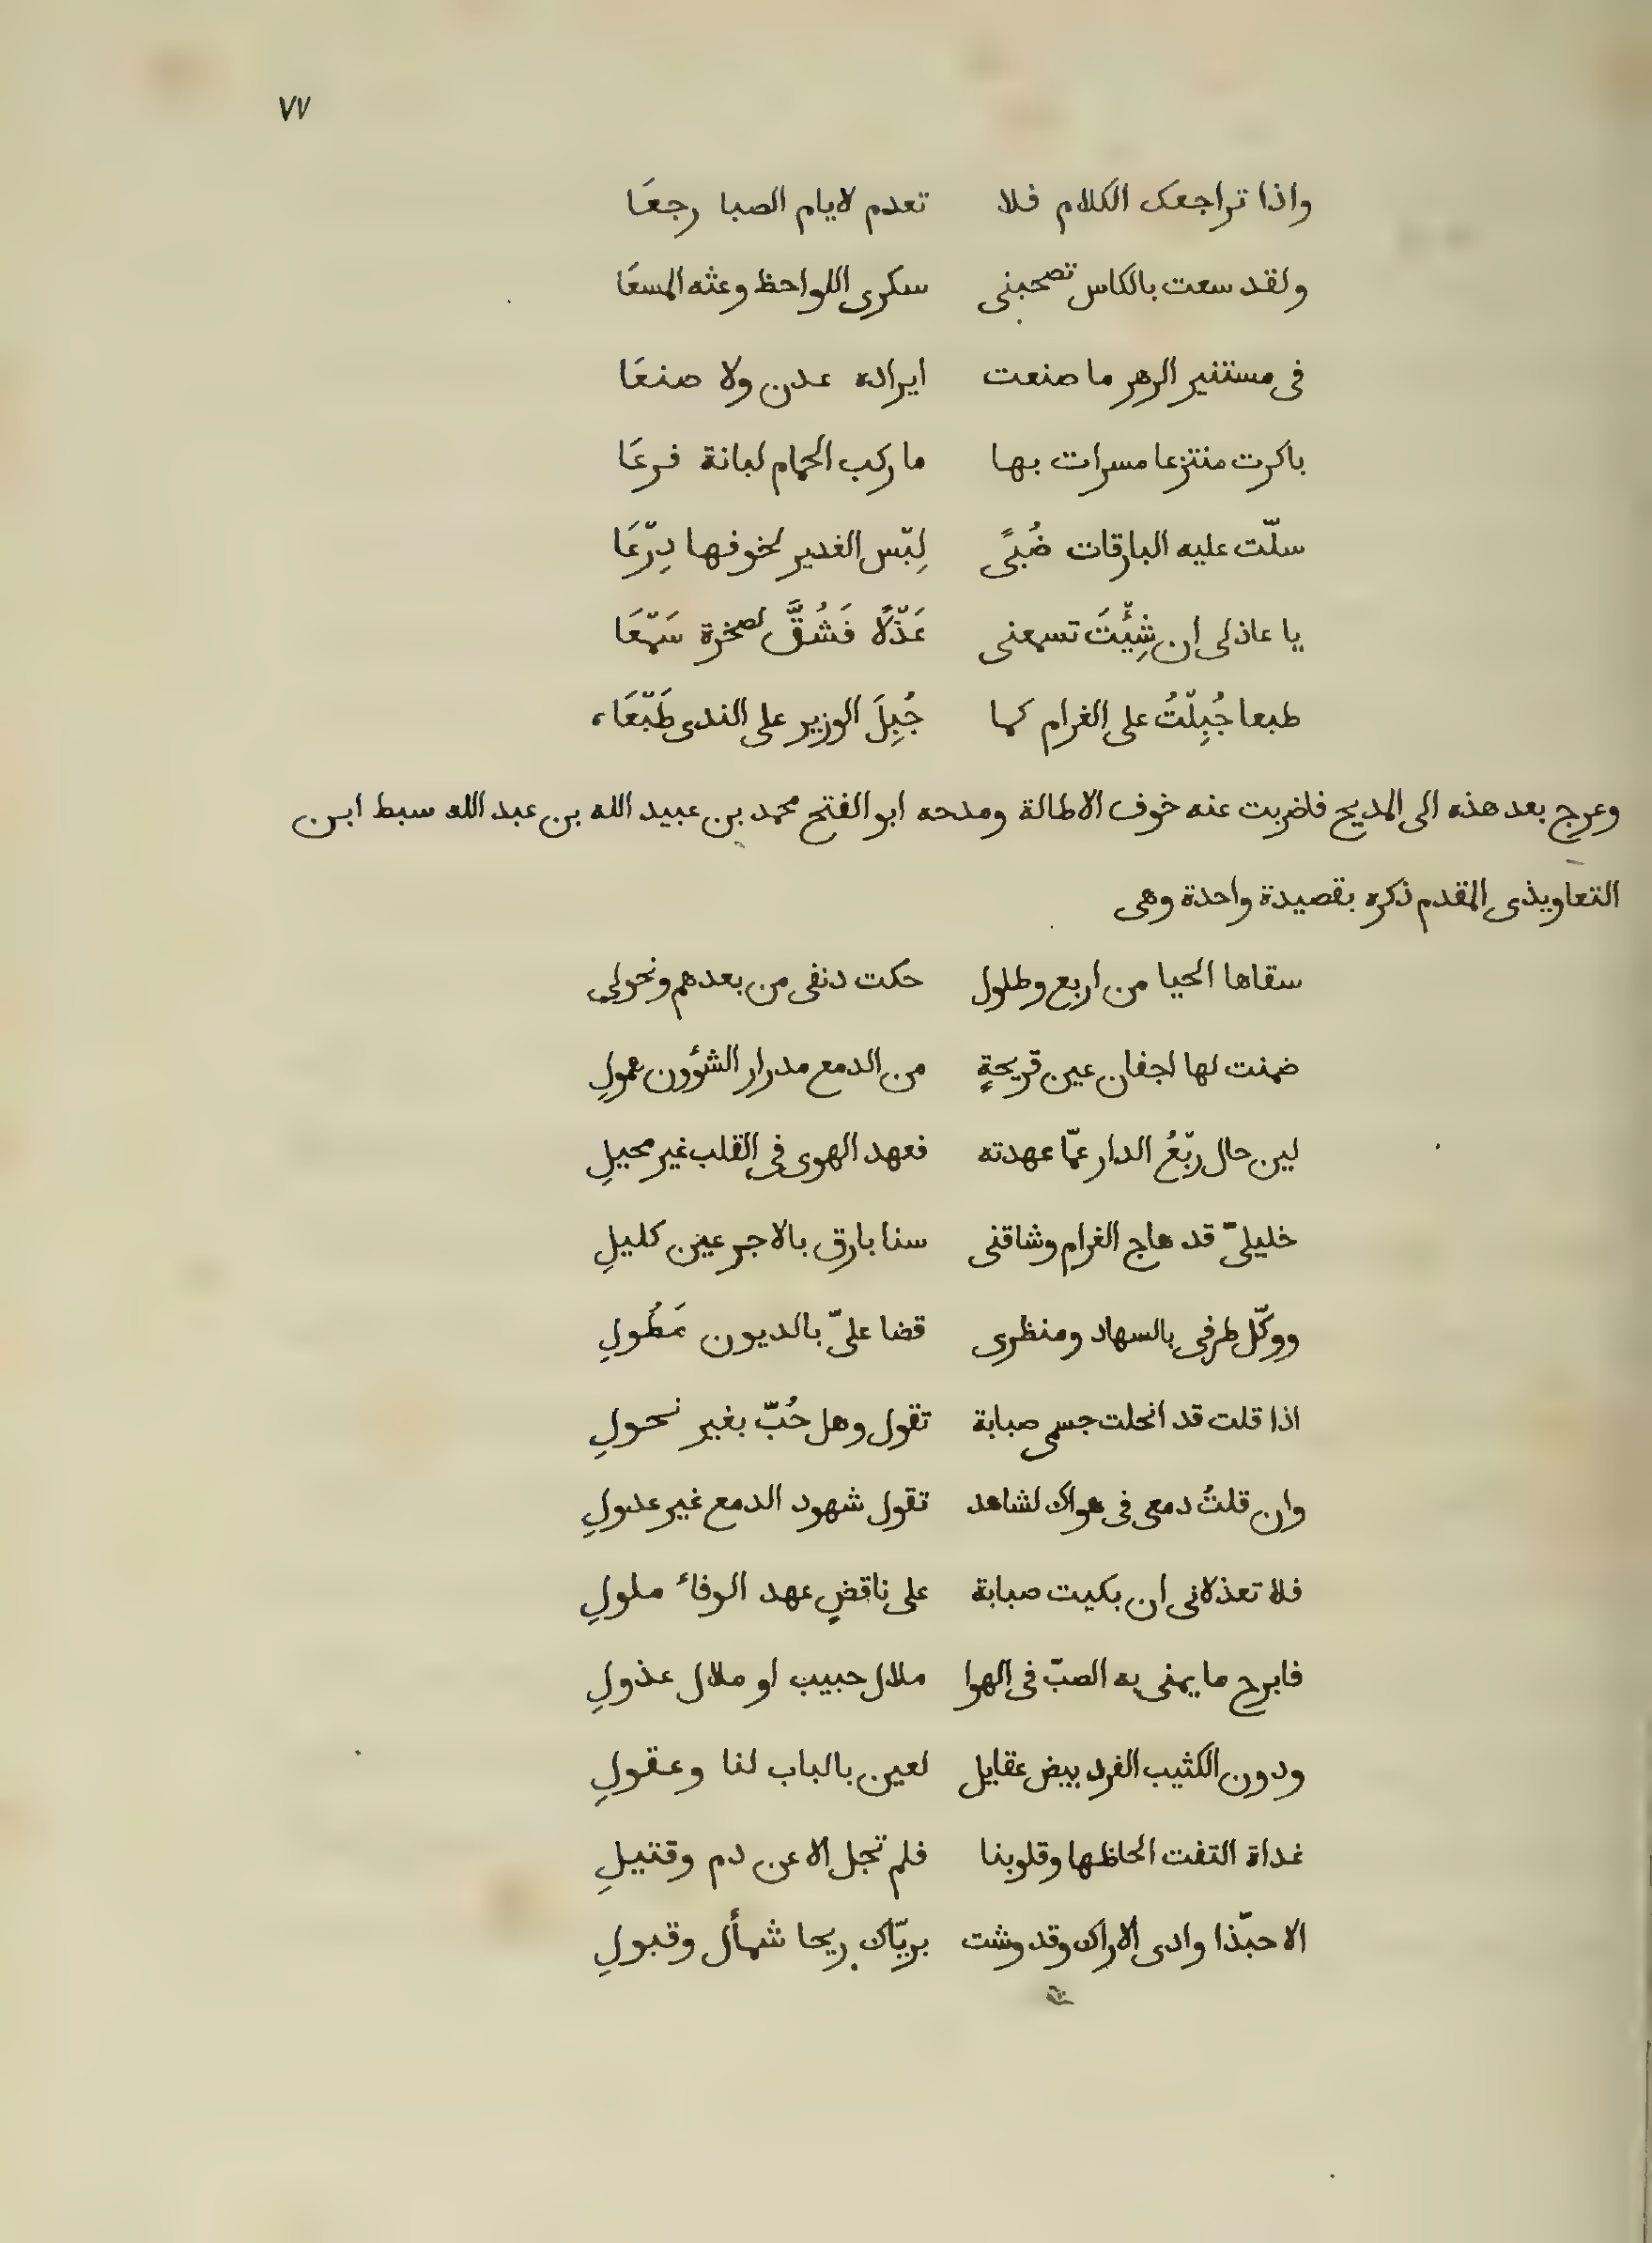 ٧٧
واذا تراجعك الكلام فلا تعدم لايام الصبا رجعَا
ولقد سعت بالكاس تصحبنى سكرى اللواحظ وعثه المسعَا
فى مستنير الزهر ما صنعت ايراده عدن ولا صنعَا
باكرت منتزعا مسرات بها ما ركب الحمام لبانة فرعَا
سلّت عليه البارقات ضُبًى لِبّس الغدير لخوفها دِرّعَا
يا عاذلى ان شِئّتَ تسمعنى عَذّلًا فَشُقَّ لصخرة سَمّعَا
طبعا جُبِلّتُ على الغرام كما جُبِلَ الوزير على الندى طَبّعَا،
وعرج بعد هذه الى المديح فاضربت عنه خوف الاطالة ومدحه ابو الفتح محمد بن عبيد الله بن عبد الله سبط ابن
التعاويذى المقدم ذكره بقصيدة واحدة وهى
سقاها الحيا من اربع وطلول حكت دنفى من بعدهم ونحولي
ضمنت لها اجفان عين قريحةٍ من الدمع مدرار الشؤون همولِ
لين حال ربّعُ الدار عمّا عهدته فعهد الهوى فى القلب غير محيلِ
خليلىّ قد هاج الغرام وشاقنى سنا بارق بالاجرعين كليلِ
ووكّل طرفى بالسهاد ومنظرى قضا علىّ بالديون مَطُولِ
اذا قلت قد انحلت جسمى صبابة تقول وهل حُبّ بغير نحولِ
وان قلتُ دمعى فى هواك لشاهد تقول شهود الدمع غير عدولِ
فلا تعذلانى ان بكيت صبابة على ناقضٍ عهد الوفاء ملولِ
فابرح ما يمنى به الصبّ فى الهوا ملال حبيب او ملال عذولِ
ودون الكثيب الفرد بيض عقايل لعبن بالباب لنا وعقولِ
غداة التفت الحاظها وقلوبنا فلم تجل الا عن دم وقتيلِ
الا حبّذا وادى الاراك وقد وشت بريّاك ريحا شمأل وقبولِ